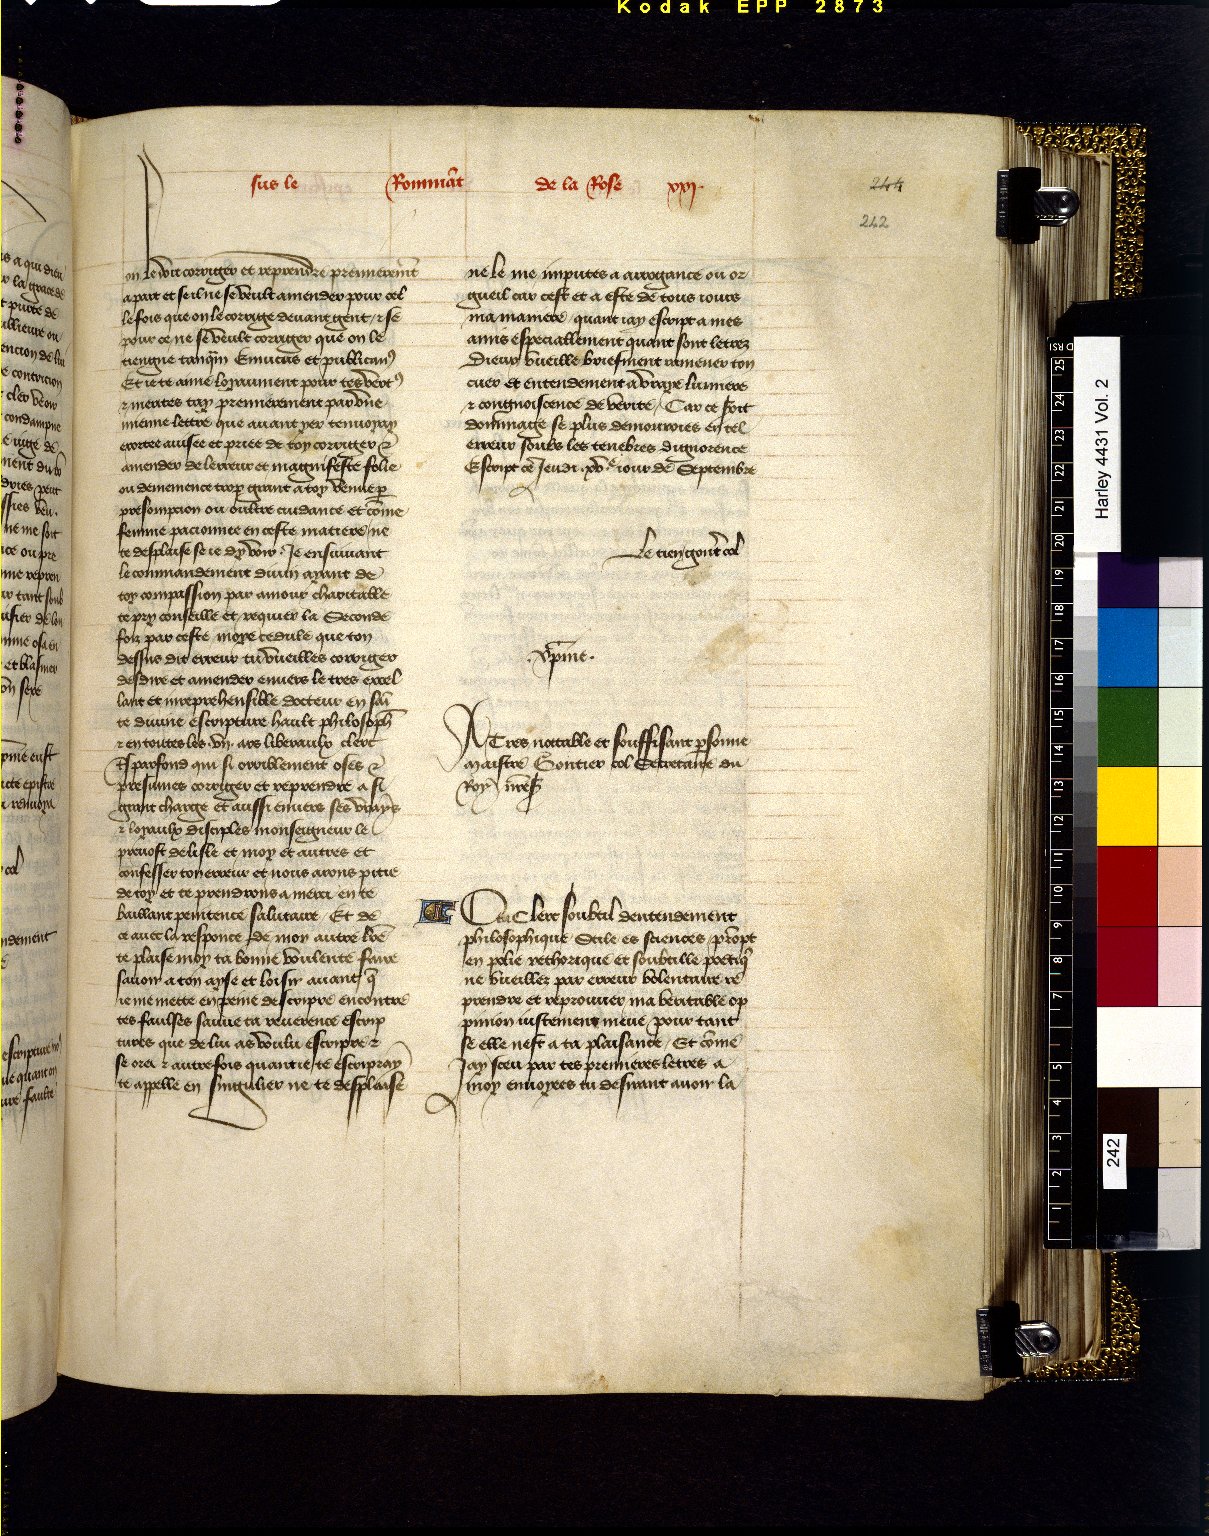 Kodak EPP 2873
sus le Rommãt de la Rose xxj.
244
242
on le doit corriger et reprendre premieremẽt
a part et se il ne se veult amender pour cel
le fois que on le corrige devant gent / et se
pour ce ne se veult corriger que on le
tiengne tanq̃m Ennucus et publicanꝰ
Et ie te aime loyaument pour tes vertꝰ
⁊ merites tay premierement par vne
mienne lettre que avant yer tenvoyay
exortee avisee et priee de toy corriger ⁊
amender de lerreur et magnifeste folie
ou demence trop grant a toy venue ꝑ
presompcion ou oultre cuidance et cõme
femme pacionnee en ceste matiere / ne
te desplaise se ie dy voir / Je ensuivant
le commandement divin ayant de
toy compassion par amour charitable
te pry conseille et requier la seconde
foiz par ceste moye cedule que ton
dessus dit erreur tu vueilles corriger
desdire et amender envers le tres excel
lant et irreprehensible docteur en sai
te divine escripture hault philosophe
⁊ en toutes les .vij. ars liberaulx clerc
Tsparfond qui si orriblement oses ⁊
presumes corriger et reprendre a si
grant charge et aussi envers ses vrays
⁊ loyaulx disciples monseigneur le
prevost de lisle et moy et autres et
confesser ton erreur et nous arons pitie
de toy et te prendrons a merci en te
baillant penitence salutaire / Et de
ce avec la responce de moy autre lr̃e
te plaise moy ta bonne voulente faire
savoir a ton ayse et loisir avant q̃
ie me mette en peine de scripre encontre
tes faulses sauve ta reverence escrip
tures que de lui as voulu escripre ⁊
se ores ⁊ autre fois quant ie te escripray
te appelle en singulier ne te desplaise
ne le me imputes a arrogance ou or
gueil car cest et a este de tous iours
ma maniere / quant iay escript a mes
amis especiallement quant sont lettrez
Dieux vueille briefment ramener ton
cuer et entendement a vraye lumiere
⁊ congnoiscence de verite / Car ce soit
dommage se plus demouroies en tel
erreur soubs les tenebres dignorence
Escript ce Jeudi .xvᵉ. iour de Septembre
Le tien gont̃ col
.xp̃ine.
A Tres nottable et souffisant ꝑsonne
maistre Gontier col Secretaire du
Roy nr̃e sr̃
O tu Clerc soubtil dentendement
philosophique Stile es sciences / prompt
en polie rethorique et soubtille poetiq̃
ne vueilles par erreur volentaire re
prendre et reprouver ma veritable op
pinion iustement meue / pour tant
se elle nest a ta plaisance / Et cõme
Jay sceu par tes premieres letres a
moy envoyees tu desirant avoir la
Harley 4431 Vol. 2
242
25
24
23
22
21
20
19
18
17
16
15
14
13
12
11
10
9
8
7
6
5
4
3
2
1